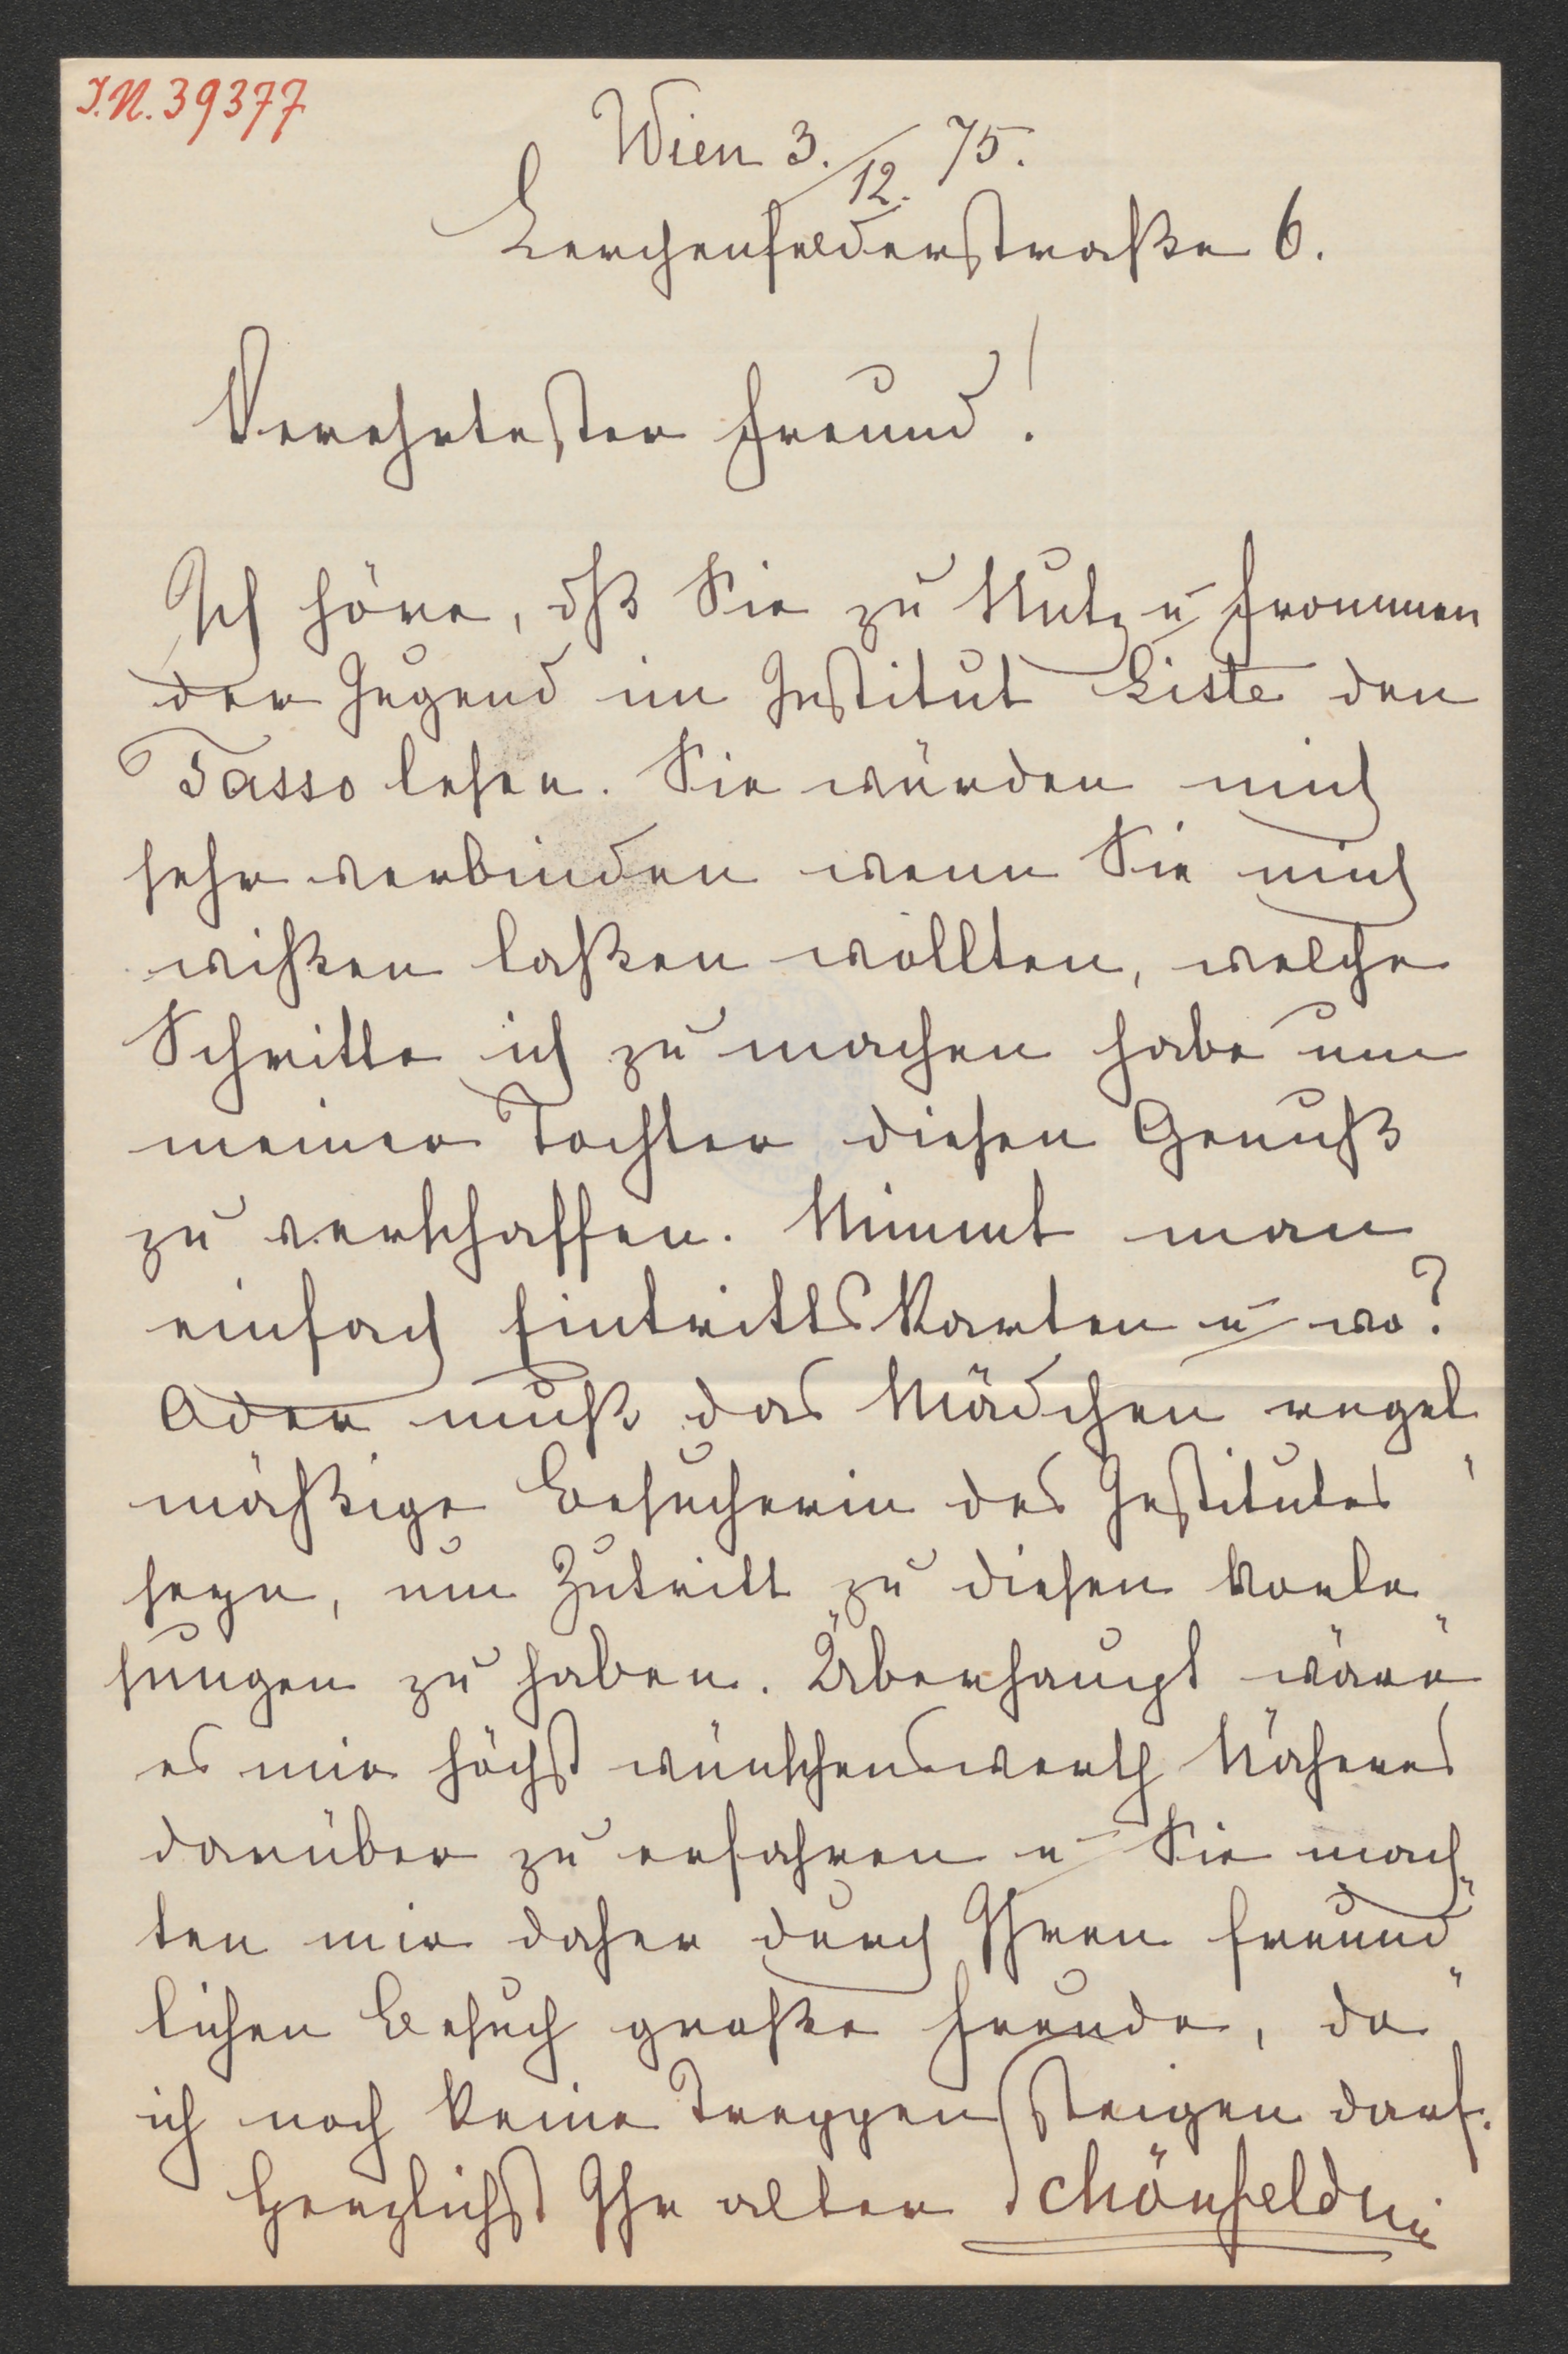 I.N. 39377
Wien 3./12. 75.
Lerchenfelderstraße 6.
Verehrtester Freund!
Ich höre, dß Sie zu Nutz u Frommen
der Jugend im Institut Liste den
Tasso lesen. Sie würden mich
sehr verbinden wenn Sie mich
wißen laßen wollten, welche
Schritte ich zu machen habe um
meiner Tochter diesen Genuß
zu verschaffen. Nimmt man
einfach Eintrittskarten u wo?
Oder muß das Mädchen regel
mäßige Besucherin des Institutes
seyn, um Zutritt zu diesen Vorle
sungen zu haben. Überhaupt wäre
es mir höchst wünschenswerth Näheres
darüber zu erfahren u Sie mach
ten mir daher durch Ihren freund
lichen Besuch große Freude, da
ich noch keine Treppen steigen darf.
Herzlichst Ihr alter Schönfeld